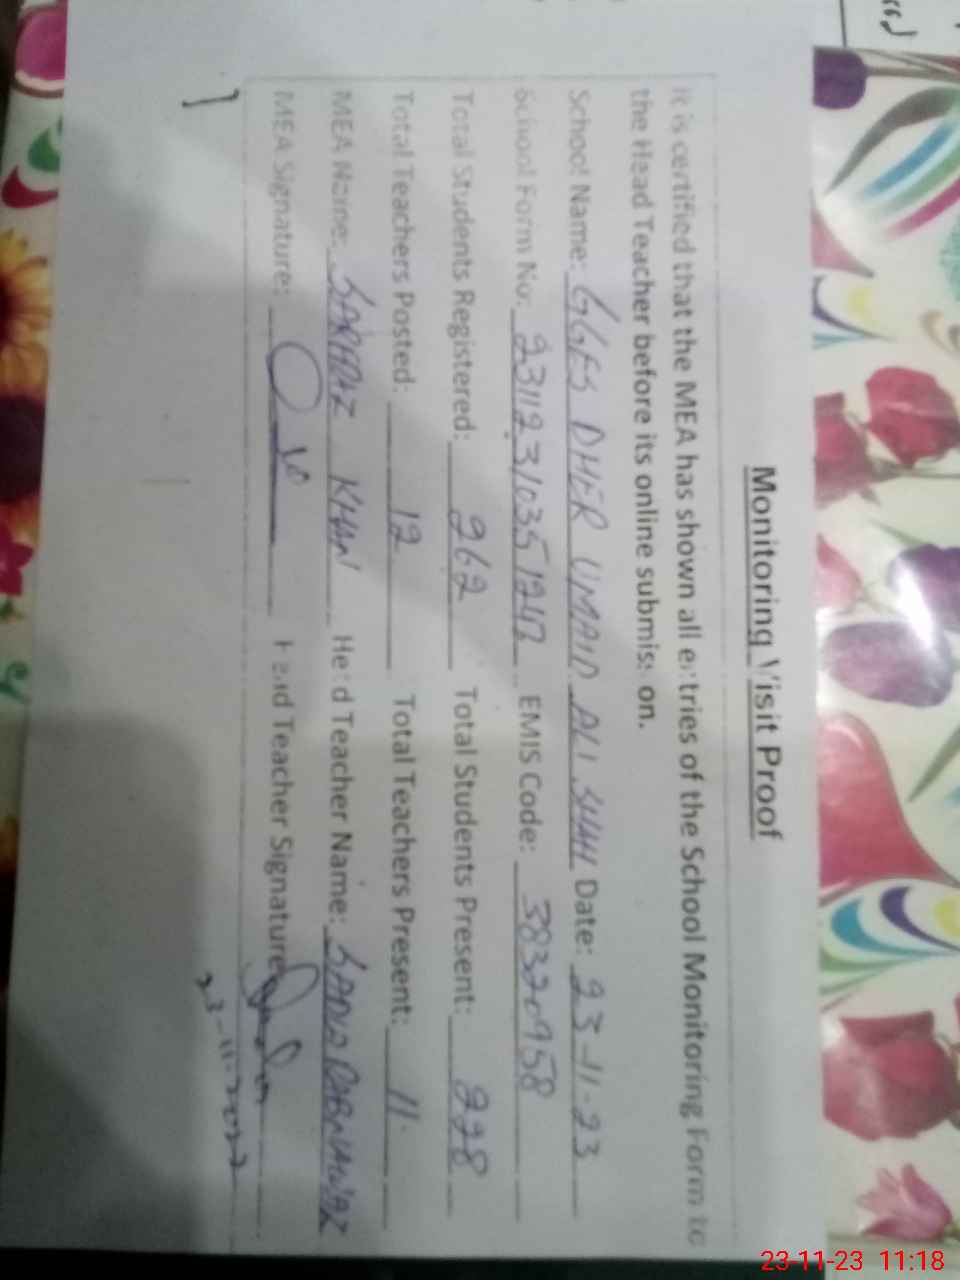 Monitoring Visit Proof
It is certified that the MEA has shown all entries of the School Monitoring Form to
the Head Teacher before its online submission.
School Name: GGES DHER UMAID ALI SHAH Date: 23-11-23
School Form No: 23112310351242 EMIS Code: 38320958
Total Students Registered: 262 Total Students Present: 228
Total Teachers Posted: 12 Total Teachers Present: 11
MEA Name: SARHAZ KHAN Head Teacher Name: SADIA RABNAWAZ
MEA Signature: Head Teacher Signature
23-11-2023
23-11-23 11:18